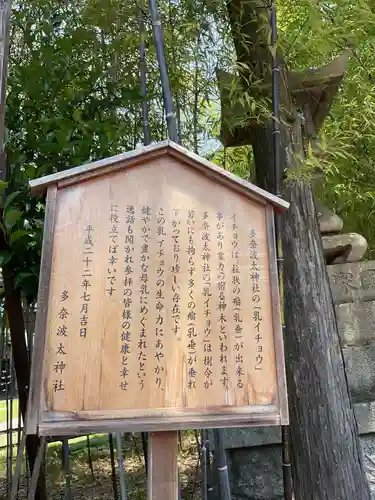 多奈波太神社の「乳イチョウ」
イチョウは、錐状の瘤(乳垂)が出来る
事があり霊力の宿る神木といわれます。
多奈波太神社の「乳イチョウ」は樹令が
若いにも拘らず多くの瘤(乳垂)が垂れ
下がっており珍しい存在です。
この乳イチョウの生命力にあやかり、
健やかで豊かな母乳にめぐまれたという
逸話も聞かれ参拝の皆様の健康と幸せ
に役立てば幸いです。
平成二十二年七月吉日
多奈波太神社